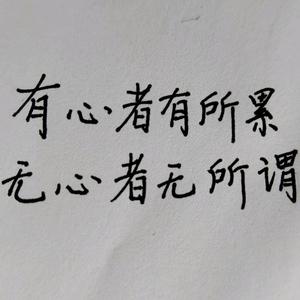 有心者有所累
无心者无所谓